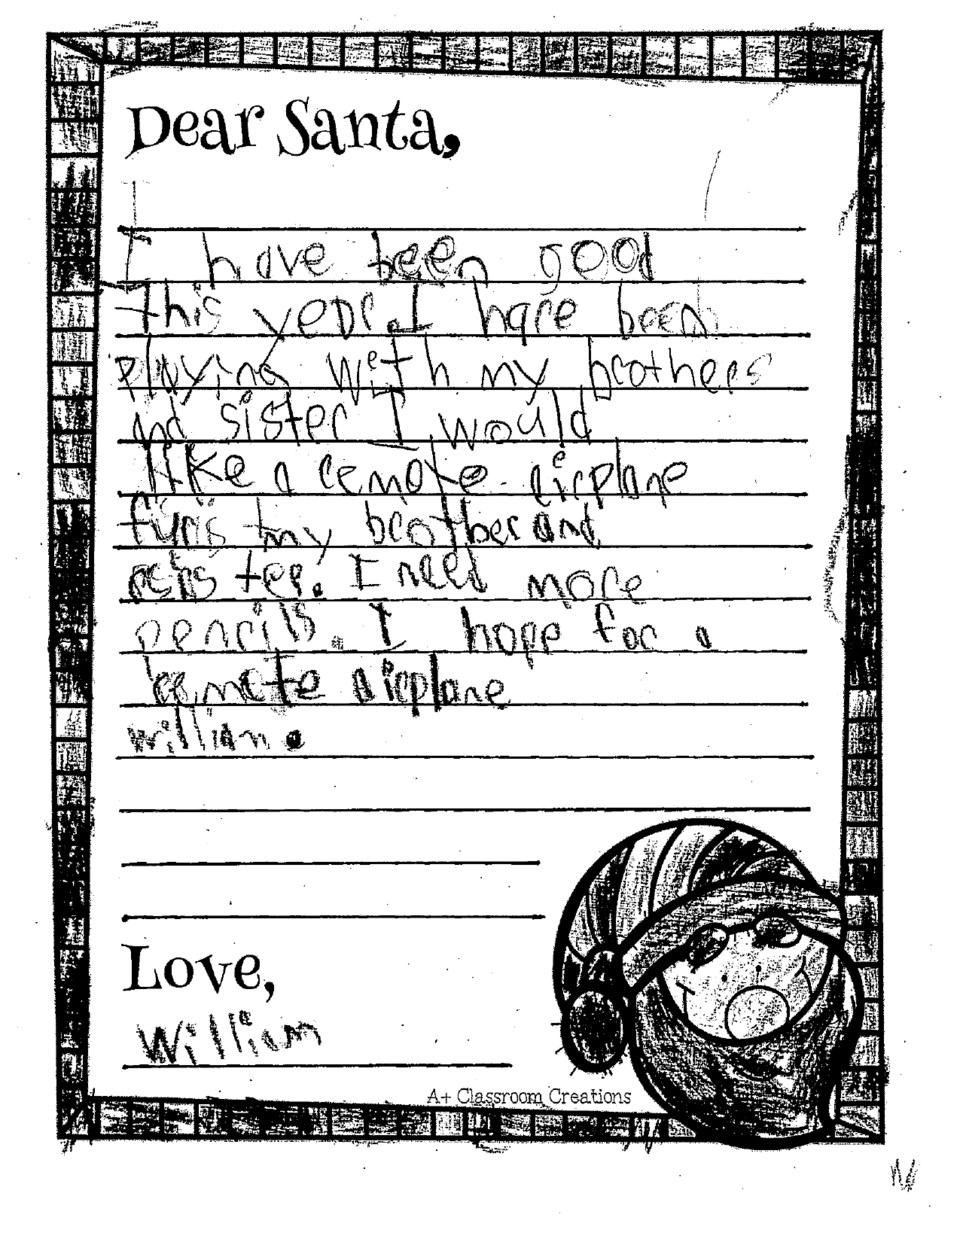 Dear Santa,
I have been good
this year. I have been
playing with my brothers
and sister I would
like a remote. airplane
my brother and
I need more
pencils. I hope for a
remote airplane
William.
Love,
William
A+ Classroom Creations